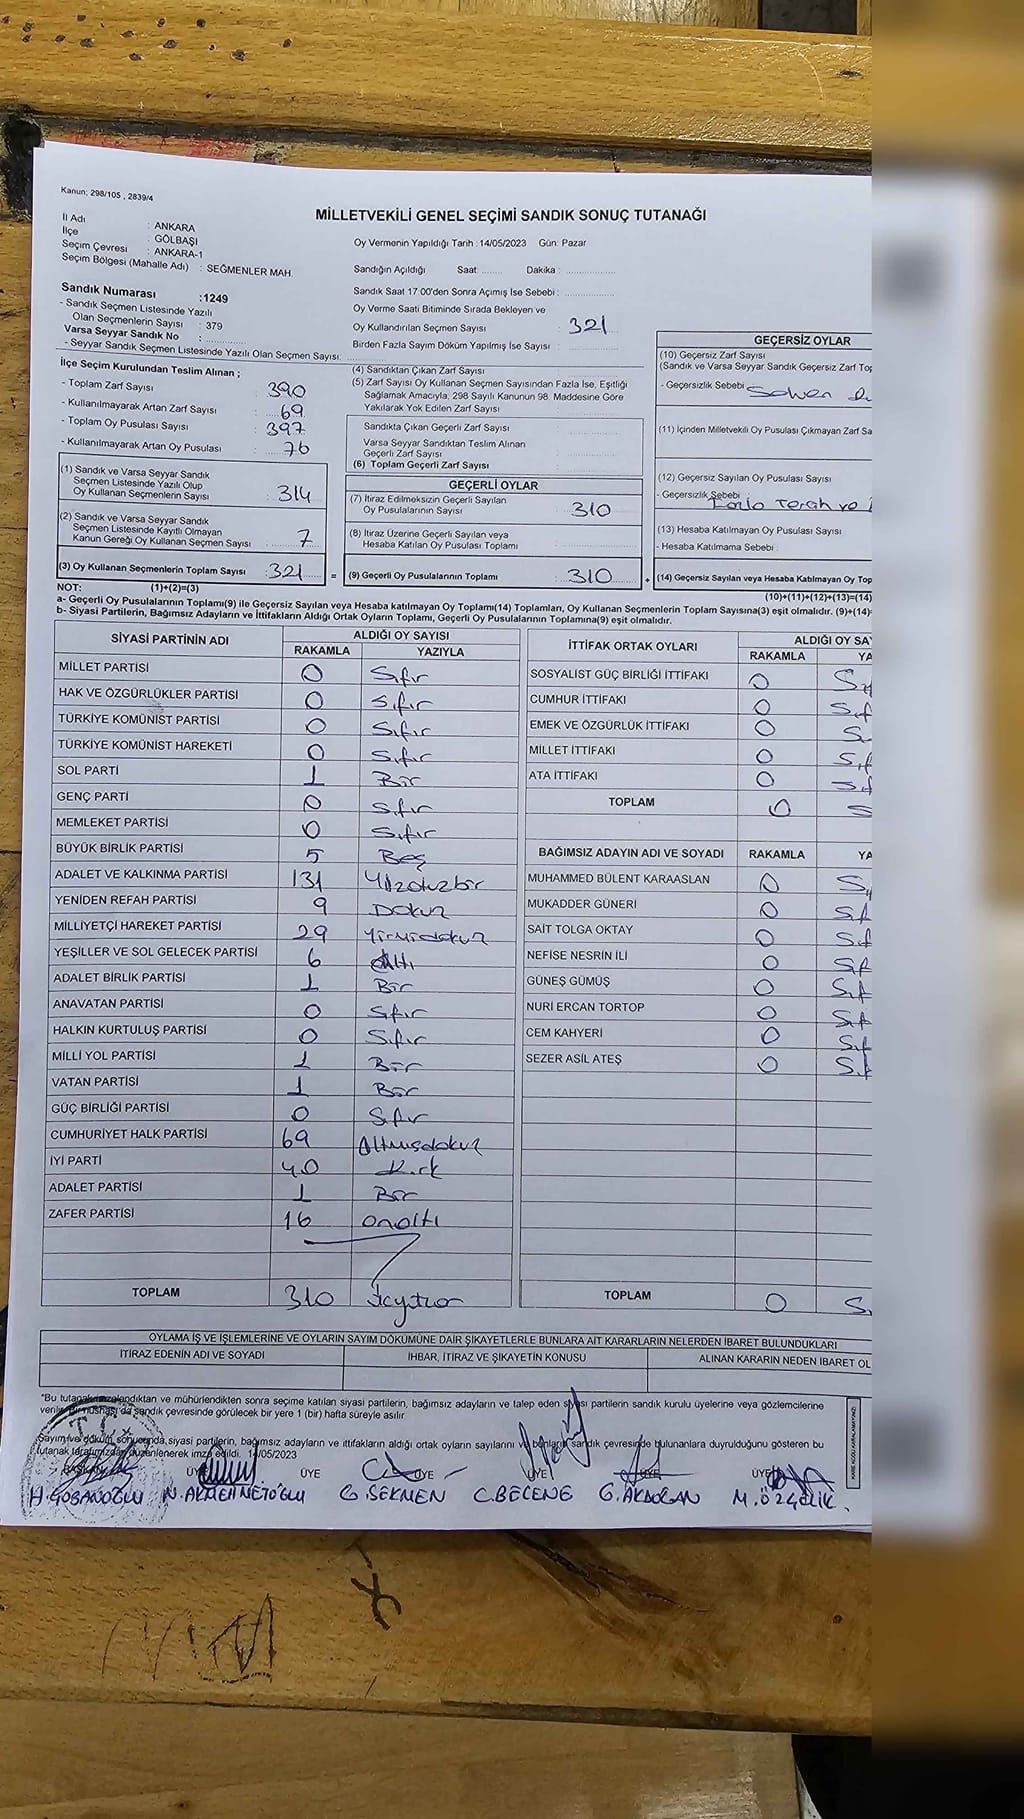 Kanun; 298/105 , 2839/4
MİLLETVEKİLİ GENEL SEÇİMİ SANDIK SONUÇ TUTANAĞI
İl Adı : ANKARA
İlçe : GÖLBAŞI
Seçim Çevresi : ANKARA-1
Seçim Bölgesi (Mahalle Adı) : SEĞMENLER MAH.
Oy Vermenin Yapıldığı Tarih :14/05/2023 Gün: Pazar
Sandığın Açıldığı Saat: ........ Dakika : ................
Sandık Saat 17:00'den Sonra Açımış İse Sebebi : ................
Sandık Numarası :1249
- Sandık Seçmen Listesinde Yazılı
Olan Seçmenlerin Sayısı : 379
Varsa Seyyar Sandık No : ................
- Seyyar Sandık Seçmen Listesinde Yazılı Olan Seçmen Sayısı: ................
Oy Verme Saati Bitiminde Sırada Bekleyen ve
Oy Kullandırılan Seçmen Sayısı : 321
Birden Fazla Sayım Döküm Yapılmış İse Sayısı : ................
İlçe Seçim Kurulundan Teslim Alınan ;
- Toplam Zarf Sayısı : 390
- Kullanılmayarak Artan Zarf Sayısı : 69
- Toplam Oy Pusulası Sayısı : 397
- Kullanılmayarak Artan Oy Pusulası : 76
(1) Sandık ve Varsa Seyyar Sandık
Seçmen Listesinde Yazılı Olup
Oy Kullanan Seçmenlerin Sayısı : 314
(2) Sandık ve Varsa Seyyar Sandık
Seçmen Listesinde Kayıtlı Olmayan
Kanun Gereği Oy Kullanan Seçmen Sayısı : 7
(3) Oy Kullanan Seçmenlerin Toplam Sayısı : 321
(4) Sandıktan Çıkan Zarf Sayısı
(5) Zarf Sayısı Oy Kullanan Seçmen Sayısından Fazla İse, Eşitliği
Sağlamak Amacıyla, 298 Sayılı Kanunun 98. Maddesine Göre
Yakılarak Yok Edilen Zarf Sayısı
Sandıkta Çıkan Geçerli Zarf Sayısı
Varsa Seyyar Sandıktan Teslim Alınan
Geçerli Zarf Sayısı
(6) Toplam Geçerli Zarf Sayısı
GEÇERLİ OYLAR
(7) İtiraz Edilmeksizin Geçerli Sayılan
Oy Pusulalarının Sayısı : 310
(8) İtiraz Üzerine Geçerli Sayılan veya
Hesaba Katılan Oy Pusulası Toplamı
= (9) Geçerli Oy Pusulalarının Toplamı : 310 +
GEÇERSİZ OYLAR
(10) Geçersiz Zarf Sayısı
(Sandık ve Varsa Seyyar Sandık Geçersiz Zarf Top
- Geçersizlik Sebebi
(11) İçinden Milletvekili Oy Pusulası Çıkmayan Zarf Sa
(12) Geçersiz Sayılan Oy Pusulası Sayısı
- Geçersizlik Sebebi
(13) Hesaba Katılmayan Oy Pusulası Sayısı
- Hesaba Katılmama Sebebi :
(14) Geçersiz Sayılan veya Hesaba Katılmayan Oy Top
NOT: (1)+(2)=(3) (10)+(11)+(12)+(13)=(14)
a- Geçerli Oy Pusulalarının Toplamı(9) ile Geçersiz Sayılan veya Hesaba katılmayan Oy Toplamı(14) Toplamları, Oy Kullanan Seçmenlerin Toplam Sayısına(3) eşit olmalıdır. (9)+(14)=
b- Siyasi Partilerin, Bağımsız Adayların ve İttifakların Aldığı Ortak Oyların Toplamı, Geçerli Oy Pusulalarının Toplamına(9) eşit olmalıdır.
SİYASİ PARTİNİN ADI ALDIĞI OY SAYISI
RAKAMLA YAZIYLA
MİLLET PARTİSİ 0 Sıfır
HAK VE ÖZGÜRLÜKLER PARTİSİ 0 Sıfır
TÜRKİYE KOMÜNİST PARTİSİ 0 Sıfır
TÜRKİYE KOMÜNİST HAREKETİ 0 Sıfır
SOL PARTİ 1 Bir
GENÇ PARTİ 0 Sıfır
MEMLEKET PARTİSİ 0 Sıfır
BÜYÜK BİRLİK PARTİSİ 5 Beş
ADALET VE KALKINMA PARTİSİ 131 Yüzotuzbir
YENİDEN REFAH PARTİSİ 9 Dokuz
MİLLİYETÇİ HAREKET PARTİSİ 29 Yirmidokuz
YEŞİLLER VE SOL GELECEK PARTİSİ 6 Altı
ADALET BİRLİK PARTİSİ 1 Bir
ANAVATAN PARTİSİ 0 Sıfır
HALKIN KURTULUŞ PARTİSİ 0 Sıfır
MİLLİ YOL PARTİSİ 1 Bir
VATAN PARTİSİ 1 Bir
GÜÇ BİRLİĞİ PARTİSİ 0 Sıfır
CUMHURİYET HALK PARTİSİ 69 Altmışdokuz
İYİ PARTİ 40 Kırk
ADALET PARTİSİ 1 Bir
ZAFER PARTİSİ 16 Onaltı
TOPLAM 310 üçyüzon
İTTİFAK ORTAK OYLARI ALDIĞI OY SAY
RAKAMLA YA
SOSYALİST GÜÇ BİRLİĞİ İTTİFAKI 0 Sıf
CUMHUR İTTİFAKI 0 Sıf
EMEK VE ÖZGÜRLÜK İTTİFAKI 0 S
MİLLET İTTİFAKI 0 Sıf
ATA İTTİFAKI 0 Sıf
TOPLAM 0 S
BAĞIMSIZ ADAYIN ADI VE SOYADI RAKAMLA YA
MUHAMMED BÜLENT KARAASLAN 0 S
MUKADDER GÜNERİ 0 Sıf
SAİT TOLGA OKTAY 0 Sıf
NEFİSE NESRİN İLİ 0 Sıf
GÜNEŞ GÜMÜŞ 0 Sıf
NURİ ERCAN TORTOP 0 Sıf
CEM KAHYERİ 0 Sıf
SEZER ASİL ATEŞ 0 Sıf
TOPLAM 0 S
OYLAMA İŞ VE İŞLEMLERİNE VE OYLARIN SAYIM DÖKÜMÜNE DAİR ŞİKAYETLERLE BUNLARA AİT KARARLARIN NELERDEN İBARET BULUNDUKLARI
İTİRAZ EDENİN ADI VE SOYADI İHBAR, İTİRAZ VE ŞİKAYETİN KONUSU ALINAN KARARIN NEDEN İBARET OL
"Bu tutanak imzalandıktan ve mühürlendikten sonra seçime katılan siyasi partilerin, bağımsız adayların ve talep eden siyasi partilerin sandık kurulu üyelerine veya gözlemcilerine
verilir. Bir nüshası da sandık çevresinde görülecek bir yere 1 (bir) hafta süreyle asılır.
Sayım ve döküm sonucunda siyasi partilerin, bağımsız adayların ve ittifakların aldığı ortak oyların sayılarını ve bunların sandık çevresinde bulunanlara duyrulduğunu gösteren bu
tutanak tarafımızdan düzenlenerek imza edildi. 14/05/2023
BAŞKAN ÜYE ÜYE ÜYE ÜYE ÜYE ÜYE
H.ÇOBANOĞLU N.AKMEHMETOĞLU G.SEKMEN C.BECENE G.AKDOĞAN M.ÖZÇELİK
T.C.